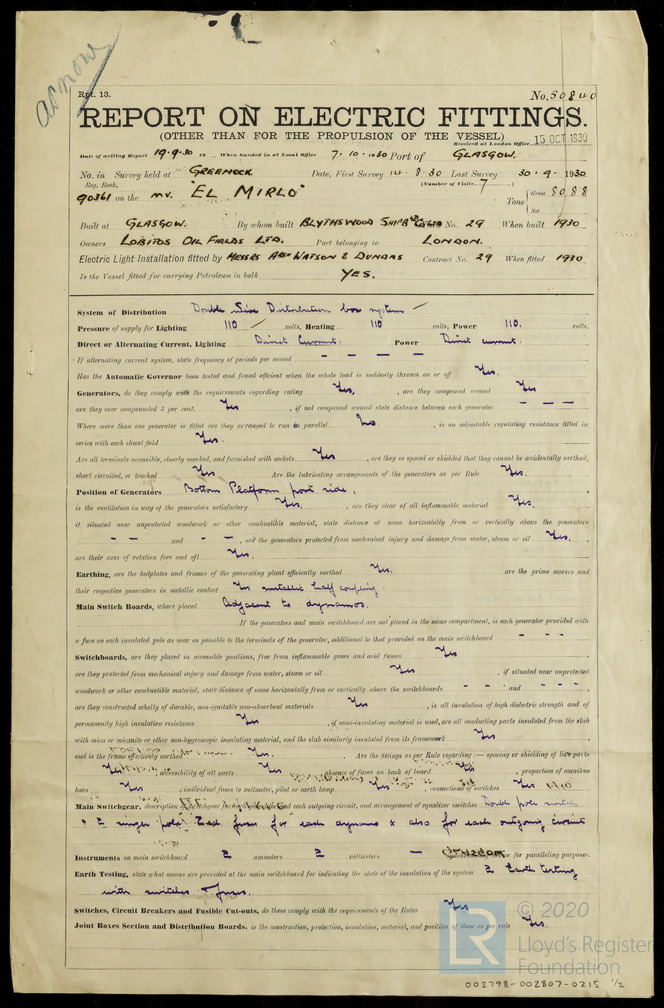 Rpt. 13.
No. 50840
REPORT ON ELECTRIC FITTINGS.
(OTHER THAN FOR THE PROPULSION OF THE VESSEL)
Received at London Office 15 OCT 1930
Date of writing Report 19.9.30 19 When handed in at Local Office 7.10.1930 Port of GLASGOW.
No. in Survey held at GREENOCK Date, First Survey 14.8.30 Last Survey 30.9.1930
Reg. Book. (Number of Visits 7 )
90361 on the MV. "EL MIRLO" Tons Gross 8088
Net
Built at GLASGOW. By whom built BLYTHSWOOD SHIPB No. 29 When built 1930
Owners LOBITOS OIL FIELDS LTD. Port belonging to LONDON.
Electric Light Installation fitted by MESSRS WATSON & DUNDAS Contract No. 29 When fitted 1930
Is the Vessel fitted for carrying Petroleum in bulk YES.
System of Distribution Double Wire Distribution box system
Pressure of supply for Lighting 110 volts, Heating 110 volts, Power 110. volts.
Direct or Alternating Current, Lighting Direct Current. Power Direct current.
If alternating current system, state frequency of periods per second — — — —
Has the Automatic Governor been tested and found efficient when the whole load is suddenly thrown on or off Yes.
Generators, do they comply with the requirements regarding rating Yes, are they compound wound Yes
are they over compounded 5 per cent. Yes, if not compound wound state distance between each generator — — —
Where more than one generator is fitted are they arranged to run in parallel No., is an adjustable regulating resistance fitted in
series with each shunt field Yes.
Are all terminals accessible, clearly marked, and furnished with sockets Yes, are they so spaced or shielded that they cannot be accidentally earthed,
short circuited, or touched Yes. Are the lubricating arrangements of the generators as per Rule Yes.
Position of Generators Bottom Platform port side,
is the ventilation in way of the generators satisfactory Yes., are they clear of all inflammable material Yes.
if situated near unprotected woodwork or other combustible material, state distance of same horizontally from or vertically above the generators
- - and - -, are the generators protected from mechanical injury and damage from water, steam or oil Yes.
are their axes of rotation fore and aft Yes.
Earthing, are the bedplates and frames of the generating plant efficiently earthed Yes. are the prime movers and
their respective generators in metallic contact Yes metallic half coupling.
Main Switch Boards, where placed Adjacent to dynamos.
If the generators and main switchboard are not placed in the same compartment, is each generator provided with
a fuse on each insulated pole as near as possible to the terminals of the generator, additional to that provided on the main switchboard - - -
Switchboards, are they placed in accessible positions, free from inflammable gases and acid fumes Yes
are they protected from mechanical injury and damage from water, steam or oil Yes, if situated near unprotected
woodwork or other combustible material, state distance of same horizontally from or vertically above the switchboards - - and - - -
are they constructed wholly of durable, non-ignitable non-absorbent materials Yes, is all insulation of high dielectric strength and of
permanently high insulation resistance Yes, if semi-insulating material is used, are all conducting parts insulated from the slab
with mica or micanite or other non-hygroscopic insulating material, and the slab similarly insulated from its framework Yes
and is the frame effectively earthed Yes. Are the fittings as per Rule regarding:— spacing or shielding of live parts
Yes, accessibility of all parts Yes, absence of fuses on back of board Yes, proportion of omnibus
bars Yes, individual fuses to voltmeter, pilot or earth lamp Yes, connections of switches Yes
Main Switchgear, description of switchgear for each outgoing circuit, and arrangement of equalizer switches Double pole switch
& 2 single pole fuses for each dynamo & also for each outgoing circuit
Instruments on main switchboard 2 ammeters 2 voltmeters — for paralleling purposes.
Earth Testing, state what means are provided at the main switchboard for indicating the state of the insulation of the system 2 Earth testing
with switches & fuses.
Switches, Circuit Breakers and Fusible Cut-outs, do these comply with the requirements of the Rules Yes
Joint Boxes Section and Distribution Boards, is the construction, protection, insulation, material, and position of these as per rule Yes.
LR
© 2020
Lloyd's Register
Foundation
002798-002807-0215 1/2